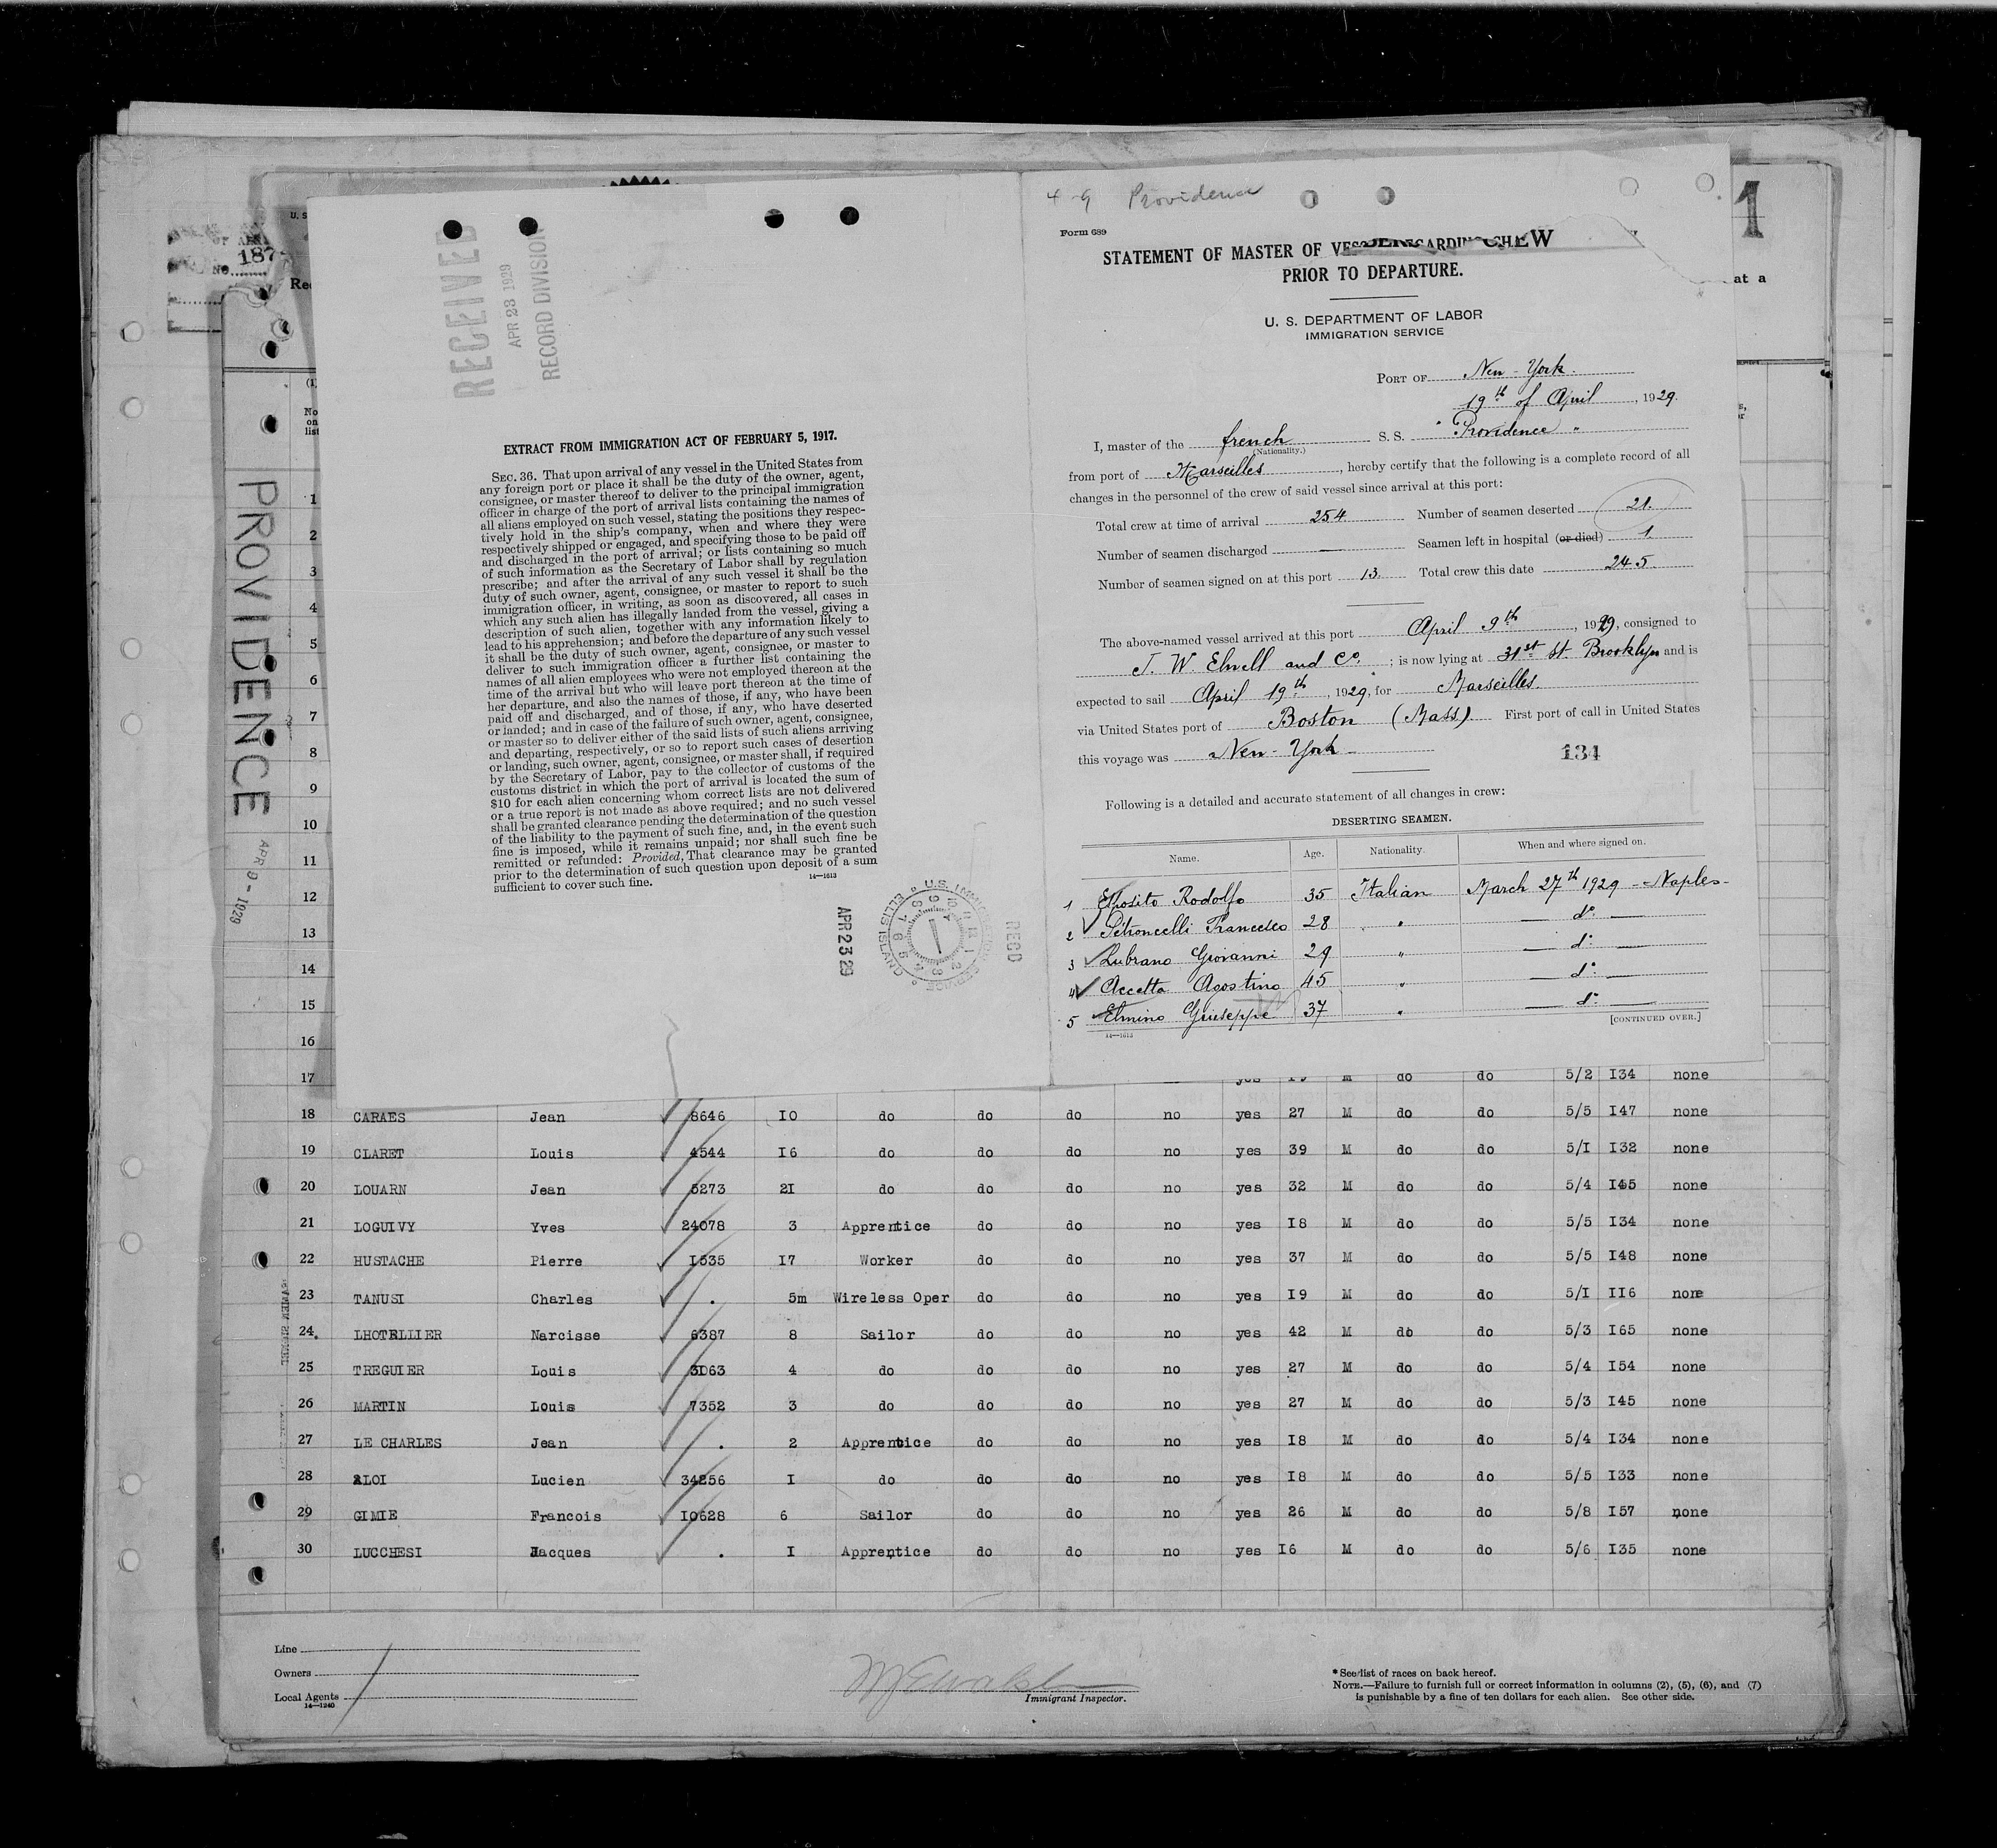 4-9 Providence
1
U. S
187
No.
Re
at a
RECEIVED
APR 23 1929
RECORD DIVISION
EXTRACT FROM IMMIGRATION ACT OF FEBRUARY 5, 1917.
SEC. 36. That upon arrival of any vessel in the United States from
any foreign port or place it shall be the duty of the owner, agent,
consignee, or master thereof to deliver to the principal immigration
officer in charge of the port of arrival lists containing the names of
all aliens employed on such vessel, stating the positions they respec-
tively hold in the ship's company, when and where they were
respectively shipped or engaged, and specifying those to be paid off
and discharged in the port of arrival; or lists containing so much
of such information as the Secretary of Labor shall by regulation
prescribe; and after the arrival of any such vessel it shall be the
duty of such owner, agent, consignee, or master to report to such
immigration officer, in writing, as soon as discovered, all cases in
which any such alien has illegally landed from the vessel, giving a
description of such alien, together with any information likely to
lead to his apprehension; and before the departure of any such vessel
it shall be the duty of such owner, agent, consignee, or master to
deliver to such immigration officer a further list containing the
names of all alien employees who were not employed thereon at the
time of the arrival but who will leave port thereon at the time of
her departure, and also the names of those, if any, who have been
paid off and discharged, and of those, if any, who have deserted
or landed; and in case of the failure of such owner, agent, consignee,
or master so to deliver either of the said lists of such aliens arriving
and departing, respectively, or so to report such cases of desertion
or landing, such owner, agent, consignee, or master shall, if required
by the Secretary of Labor, pay to the collector of customs of the
customs district in which the port of arrival is located the sum of
$10 for each alien concerning whom correct lists are not delivered
or a true report is not made as above required; and no such vessel
shall be granted clearance pending the determination of the question
of the liability to the payment of such fine, and, in the event such
fine is imposed, while it remains unpaid; nor shall such fine be
remitted or refunded: Provided, That clearance may be granted
prior to the determination of such question upon deposit of a sum
sufficient to cover such fine.
14—1613
APR 23 29
U.S. IMMIGRATION SERVICE
ELLIS ISLAND
REC'D
Form 689
STATEMENT OF MASTER OF VESSEL REGARDING CREW
PRIOR TO DEPARTURE.
U. S. DEPARTMENT OF LABOR
IMMIGRATION SERVICE
PORT OF New-York.
19th of April, 1929.
I, master of the french S. S. "Providence"
(Nationality.)
from port of Marseilles, hereby certify that the following is a complete record of all
changes in the personnel of the crew of said vessel since arrival at this port:
Total crew at time of arrival 254 Number of seamen deserted 21.
Number of seamen discharged — Seamen left in hospital (or died) 1
Number of seamen signed on at this port 13. Total crew this date 245
The above-named vessel arrived at this port April 9th, 1929, consigned to
J. W. Elwell and Co.; is now lying at 31st St. Brooklyn and is
expected to sail April 19th, 1929, for Marseilles.
via United States port of Boston (Mass). First port of call in United States
this voyage was New-York
134
Following is a detailed and accurate statement of all changes in crew:
DESERTING SEAMEN.
Name. Age. Nationality. When and where signed on.
1 Esposito Rodolfo 35 Italian March 27th 1929 - Naples-
2 Petroncelli Francesco 28 " — do —
3 Lubrano Giovanni 29 " — do —
4 Accetta Agostino 45 " — do —
5 Elmino Giuseppe 37 " — do —
14—1613 [CONTINUED OVER.]
PROVIDENCE
APR 9 - 1929
(1)
No
on
list
1
2
3
4
5
6
7
8
9
10
11
12
13
14
15
16
17 yes M do do 5/2 I34 none
18 CARAES Jean 8646 IO do do do no yes 27 M do do 5/5 I47 none
19 CLARET Louis 4544 I6 do do do no yes 39 M do do 5/I I32 none
20 LOUARN Jean 5273 2I do do do no yes 32 M do do 5/4 I45 none
21 LOGUIVY Yves 24078 3 Apprentice do do no yes I8 M do do 5/5 I34 none
22 HUSTACHE Pierre I535 I7 Worker do do no yes 37 M do do 5/5 I48 none
23 TANUSI Charles . 5m Wireless Oper do do no yes I9 M do do 5/I II6 none
24. LHOTELLIER Narcisse 6387 8 Sailor do do no yes 42 M do do 5/3 I65 none
25 TREGUIER Louis 3063 4 do do do no yes 27 M do do 5/4 I54 none
26 MARTIN Louis 7352 3 do do do no yes 27 M do do 5/3 I45 none
27 LE CHARLES Jean . 2 Apprentice do do no yes I8 M do do 5/4 I34 none
28 ALOI Lucien 34256 I do do do no yes I8 M do do 5/5 I33 none
29 GIMIE Francois I0628 6 Sailor do do no yes 26 M do do 5/8 I57 none
30 LUCCHESI Jacques . I Apprentice do do no yes I6 M do do 5/6 I35 none
Line
Owners
Local Agents
14—1240
Immigrant Inspector.
* See list of races on back hereof.
NOTE.—Failure to furnish full or correct information in columns (2), (5), (6), and (7)
is punishable by a fine of ten dollars for each alien. See other side.